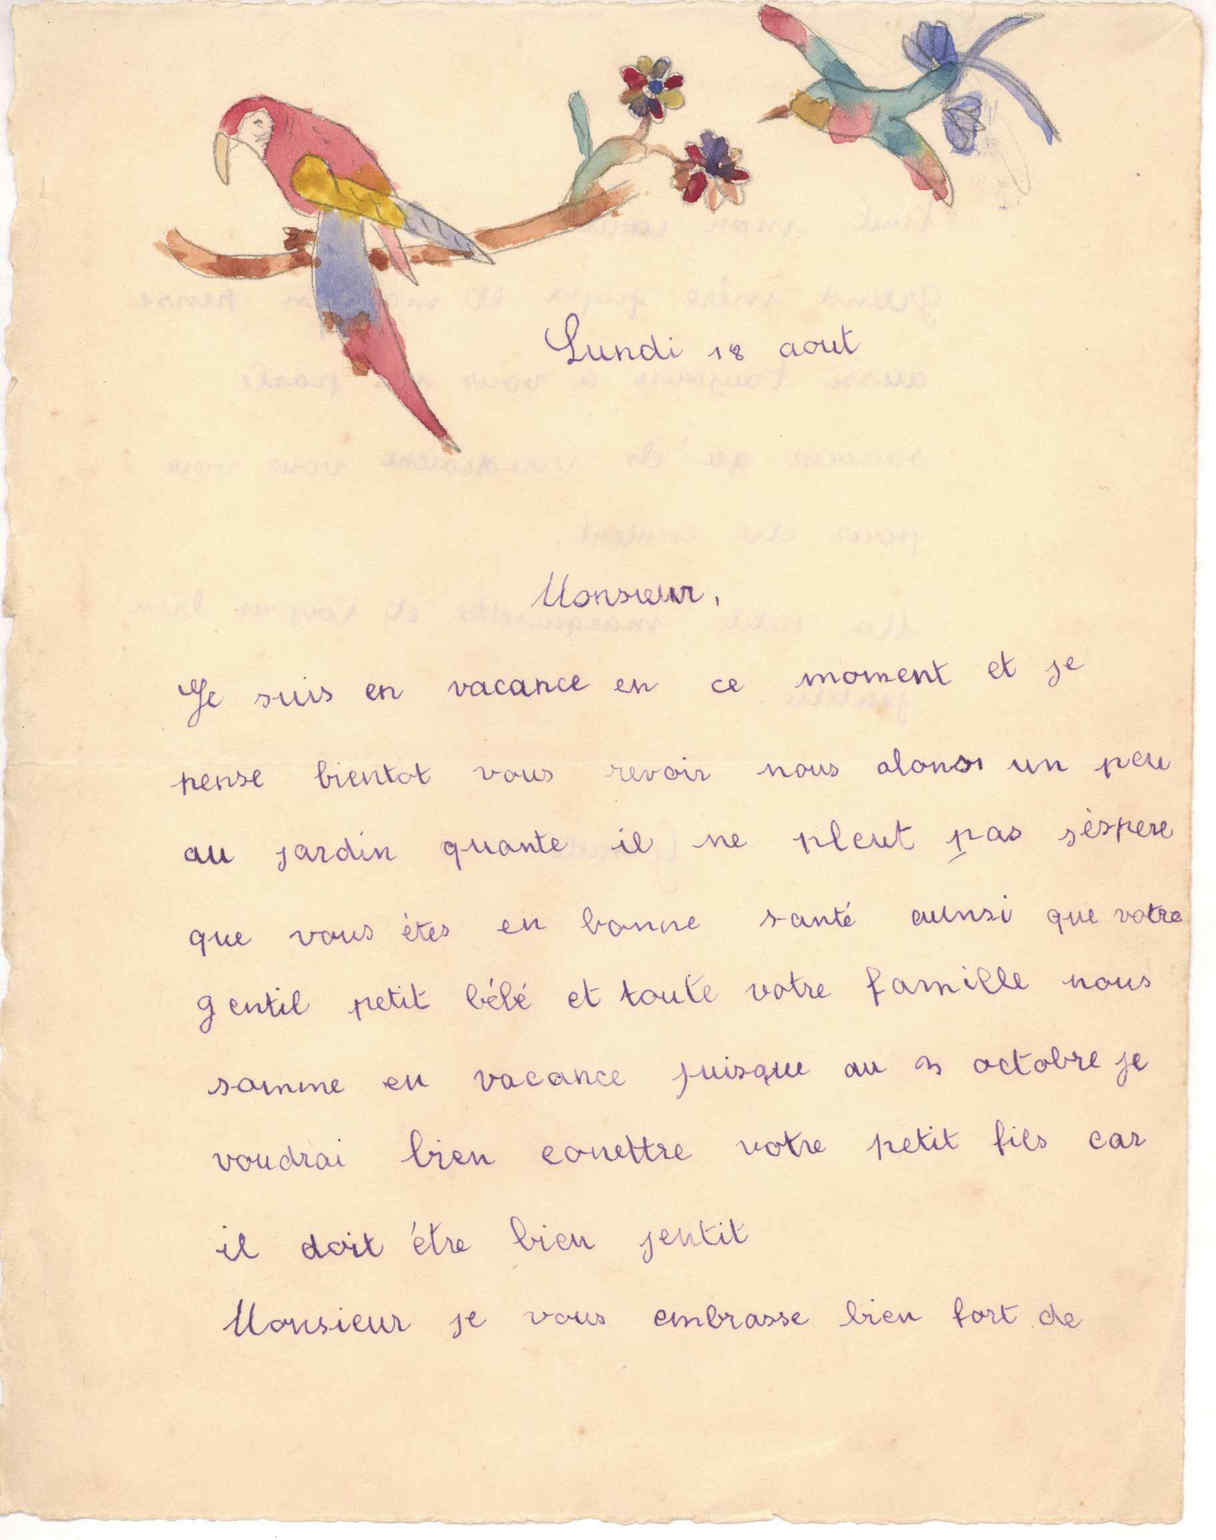 Lundi 18 aout
Monsieur,
Je suis en vacance en ce moment et je
pense bientot vous revoir nous alons un peu
au jardin quante il ne pleut pas j'éspere
que vous étes en bonne santé aunsi que votre
gentil petit bébé et toute votre famille nous
somme en vacance juisque au octobre je
voudrai bien conettre votre petit fils car
il doit étre bien jentit
Monsieur je vous embrasse bien fort de